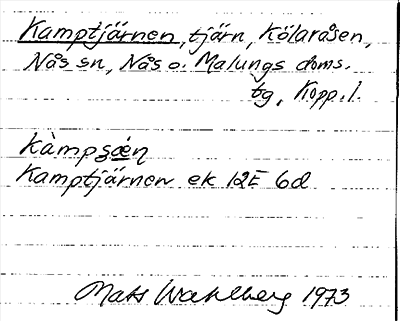 Kamptjärnen, tjärn, Kölaråsen,
Nås sn, Nås o. Malungs doms.
tg, Kopp. l.
Kamptjärnen ek 12E 6d
Mats Wahlberg 1973